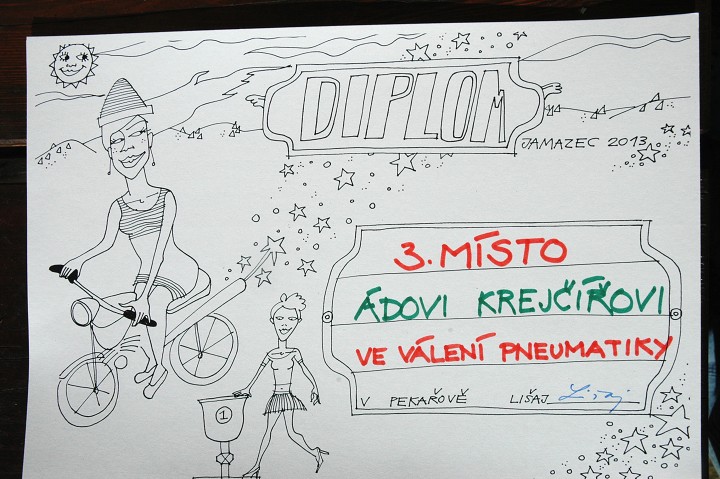 DIPLOM
JAMAZEC 2013
3. MÍSTO
ÁDOVI KREJČÍŘOVI
VE VÁLENÍ PNEUMATIKY
V PEKAŘOVĚ LIŠAJ Lišaj
1